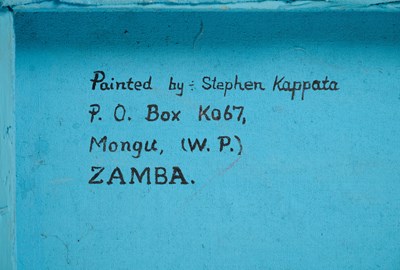 Painted by:- Stephen Kappata
P. O. Box K067,
Mongu, (W. P.)
ZAMBA.